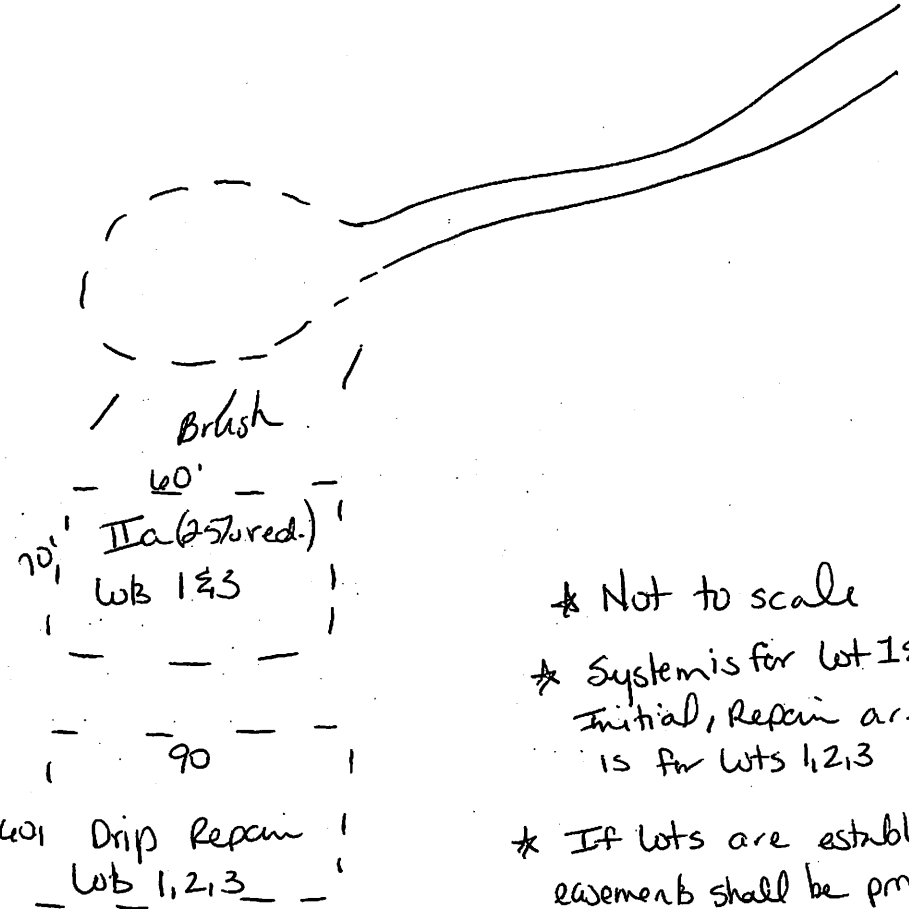 Brush
60'
IIa (25% red.)
70'
Lots 1&3
90
60' Drip Repair
Lots 1,2,3
* Not to scale
* System is for Lot 1&
Initial, Repair ar
is for Lots 1,2,3
* If Lots are establ
easements shall be pro